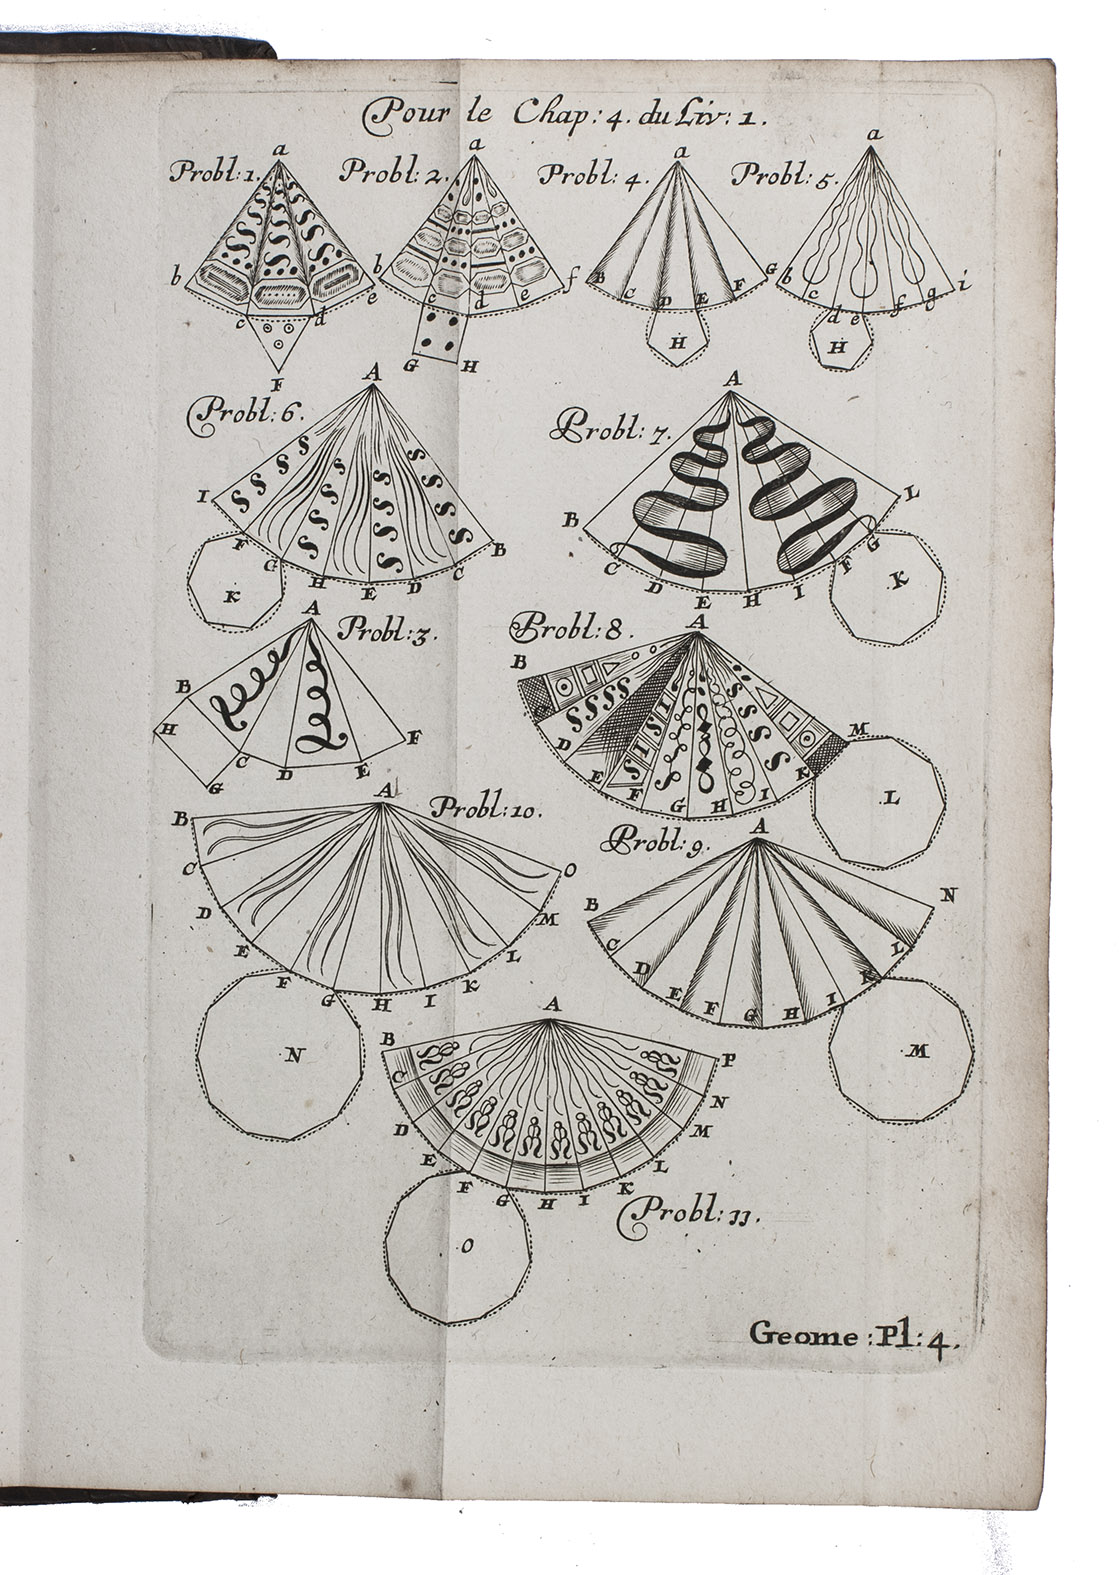 Pour le Chap: 4. du Liv: 1.
Probl: 1.
a
b
c
d
e
F
Probl: 2.
a
b
c
d
e
f
G
H
Probl: 4.
a
B
C
D
E
F
G
H
Probl: 5.
a
b
c
d
e
f
g
i
H
Probl: 6.
A
I
F
G
H
E
D
C
B
K
Probl: 7.
A
B
C
D
E
H
I
F
G
L
K
Probl: 3.
A
B
H
G
C
D
E
F
Probl: 8.
A
B
D
E
F
G
H
I
K
M
L
Probl: 10.
A
B
C
D
E
F
G
H
I
K
L
M
O
N
Probl: 9.
A
B
C
D
E
F
G
H
I
K
L
N
M
A
B
C
D
E
F
G
H
I
K
L
M
N
P
O
Probl: 11.
Geome: Pl: 4.